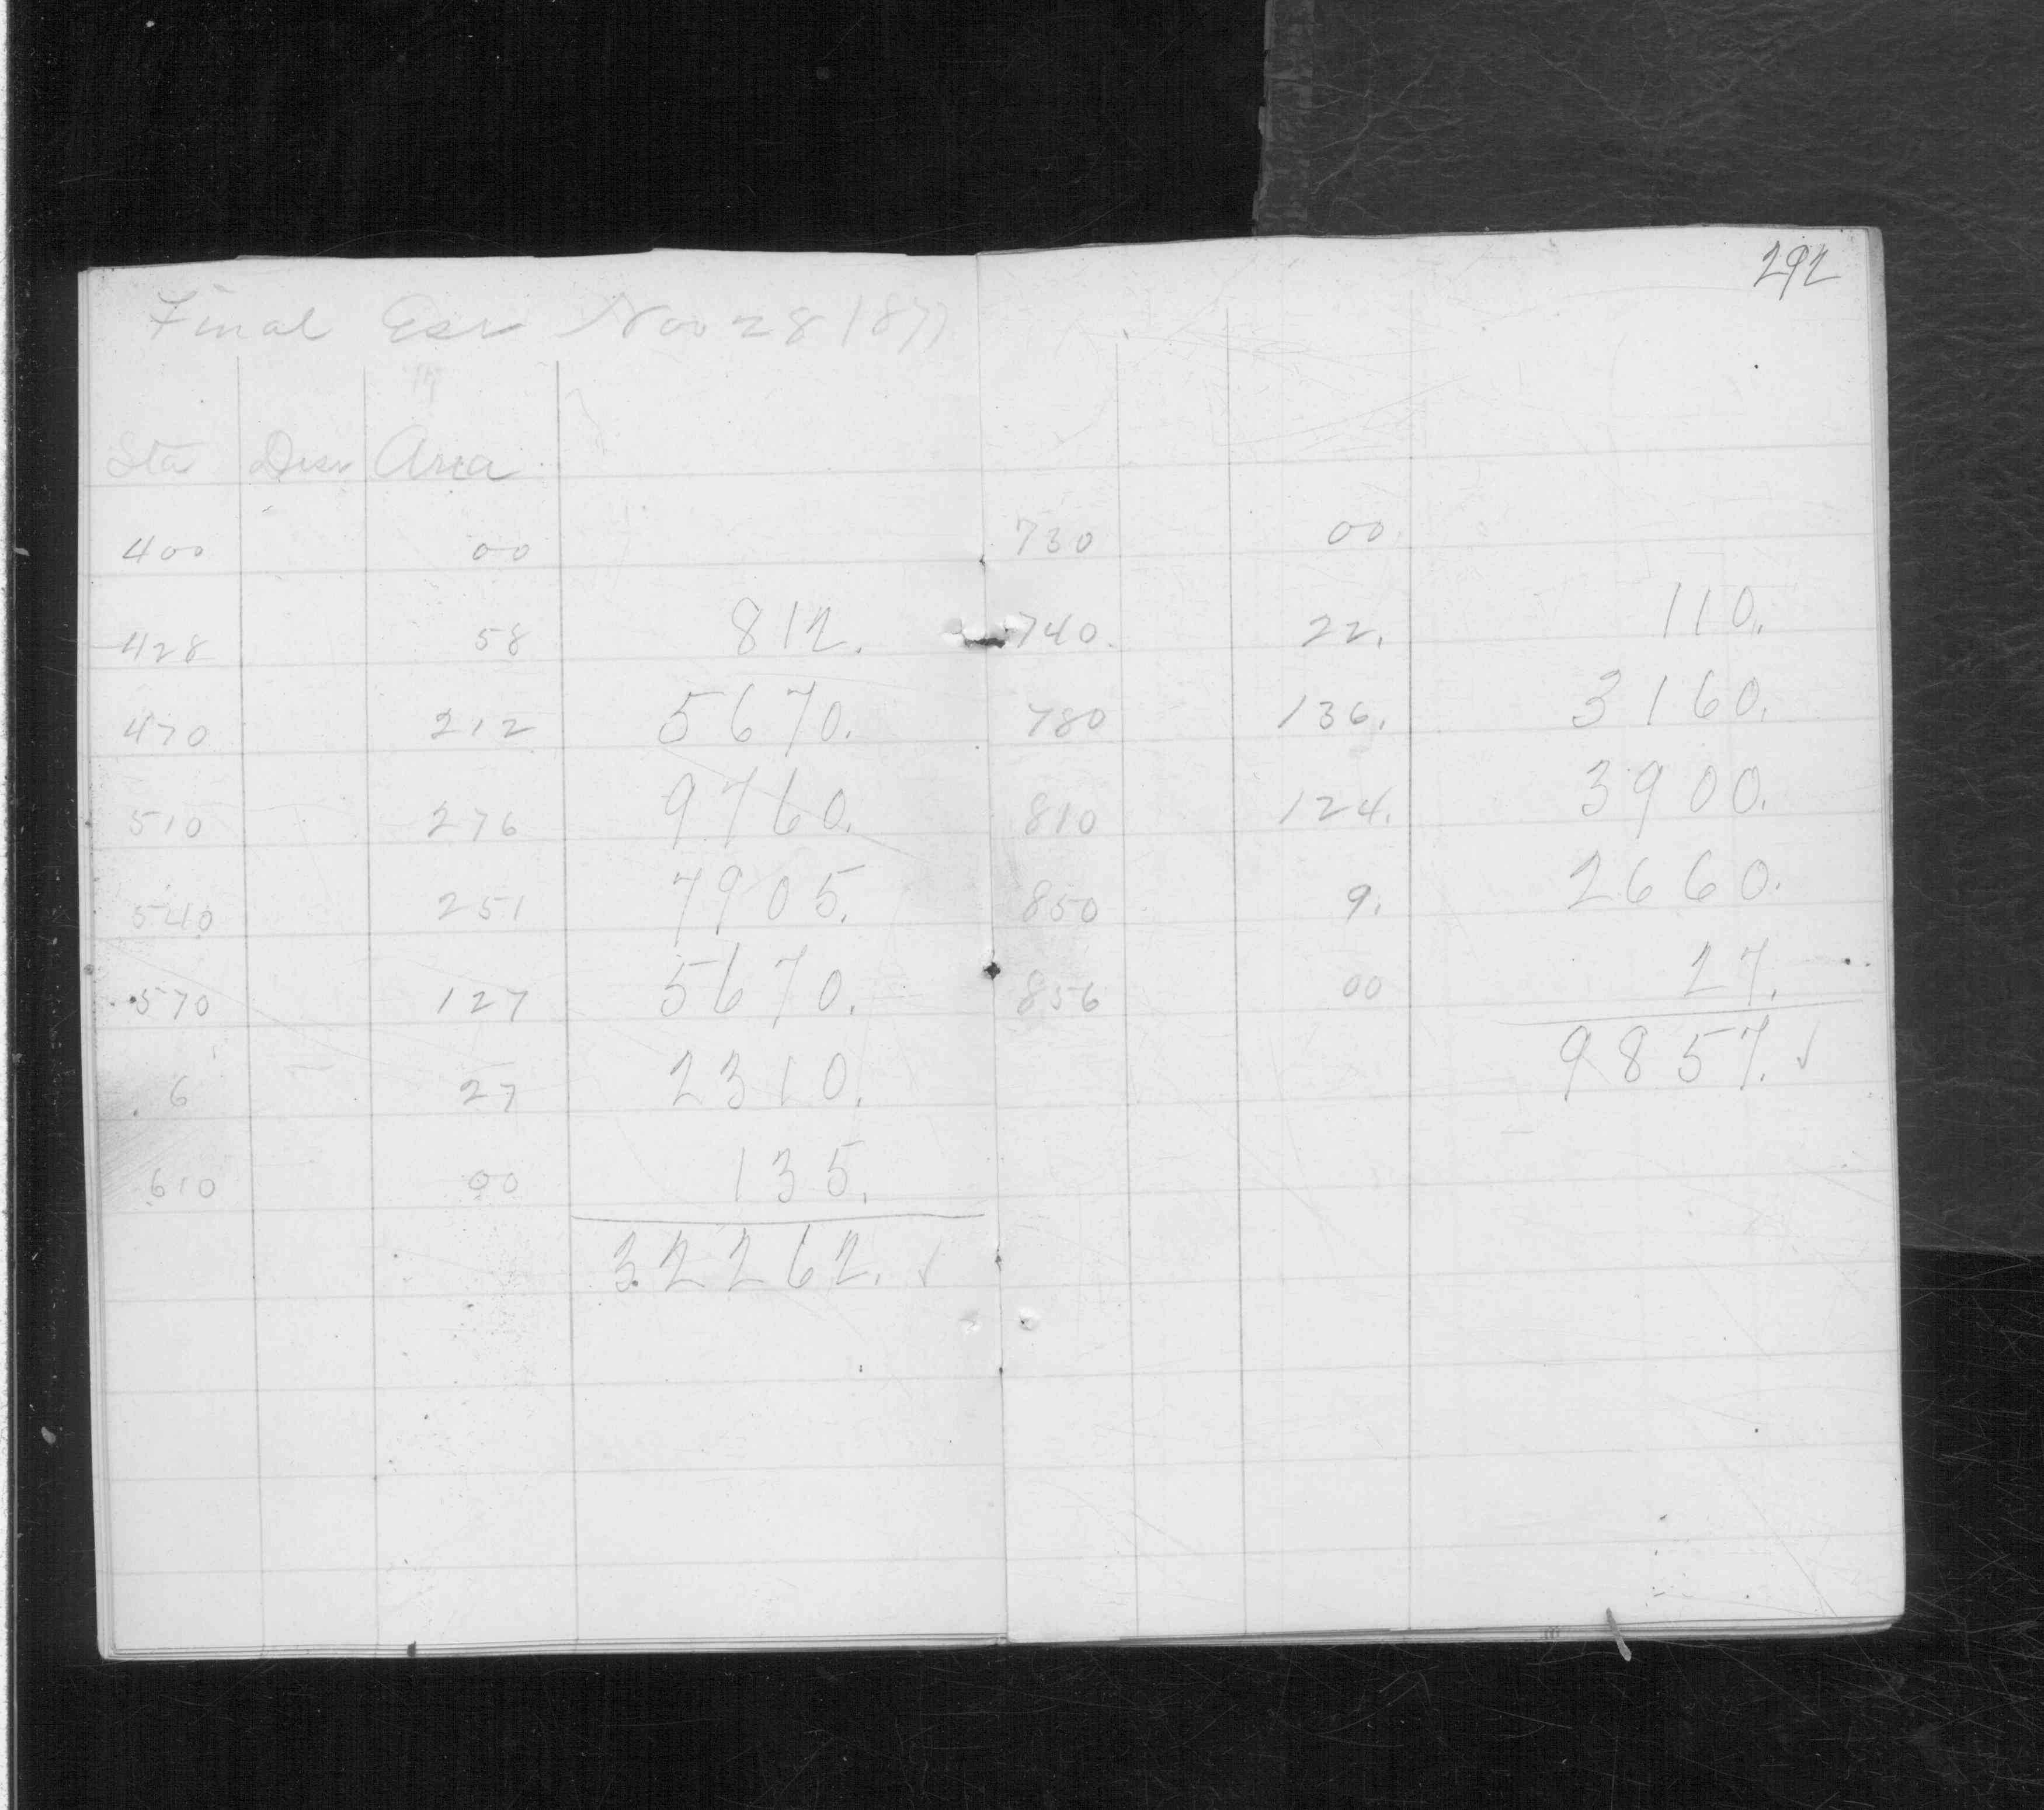 292
Final Est Nov 28 1877
Sta Dist Area
400 00
428 58 812.
470 212 5670.
510 276 9760.
540 251 7905.
570 127 5670.
6 27 2310.
610 00 135.
32262. ✓
730 00
740. 22. 110.
780 136. 3160.
810 124. 3900.
850 9. 2660.
856 00 27.
9857. ✓